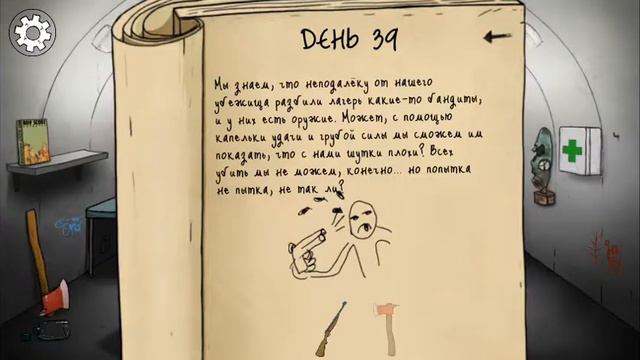 ДЕНЬ 39
Мы знаем, что неподалёку от нашего
убежища разбили лагерь какие-то бандиты,
и у них есть оружие. Может, с помощью
капельки удачи и грубой силы мы сможем им
показать, что с нами шутки плохи? Всех
убить мы не можем, конечно... но попытка
не пытка, не так ли?